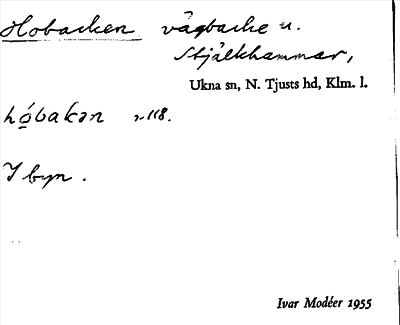 Hobacken vägbacke u.
Stjälkhammar,
Ukna sn, N. Tjusts hd, Klm. l.
hó̲bakən r 118.
I byn.
Ivar Modéer 1955